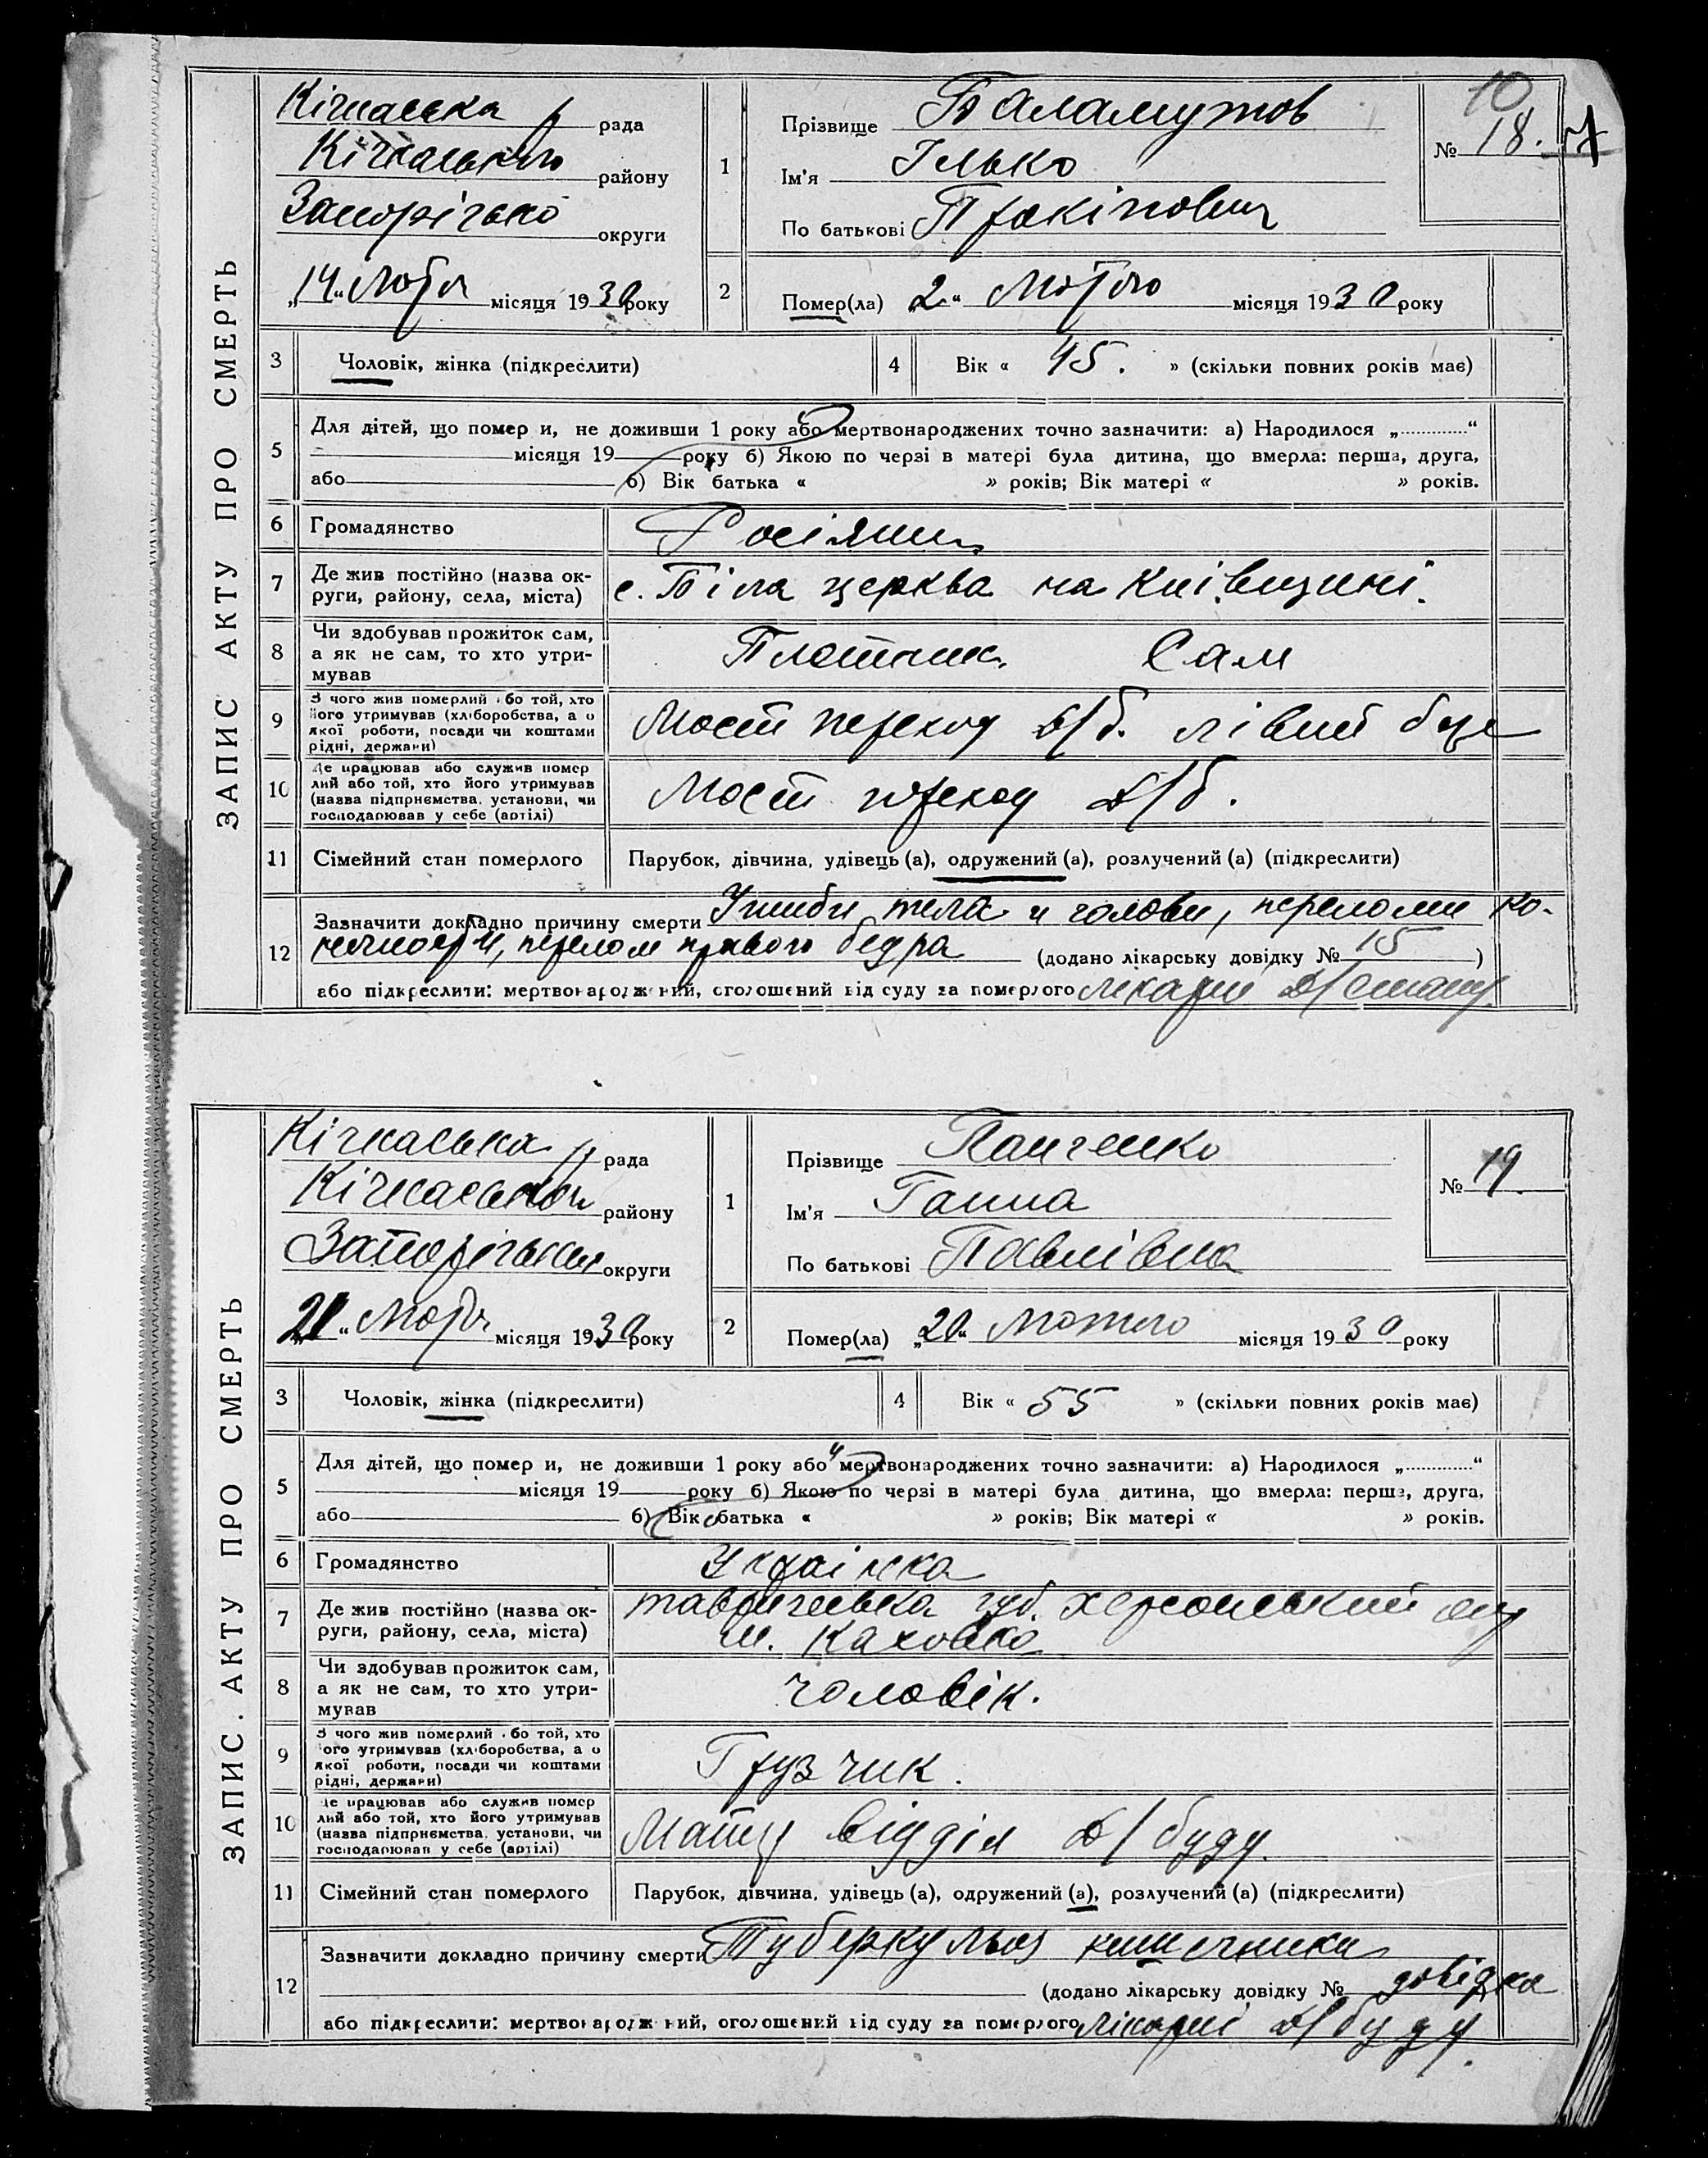 ЗАПИС АКТУ ПРО СМЕРТЬ
10
Кічкаська р рада
Кічкаського району
Запорізько округи
"14" Лютя місяця 1930 року
1
Прізвище Баламутов
Ім'я Ілько
По батькові Прокіпович
№ 18.
2
Помер(ла) "2" Лютого місяця 1930 року
3 Чоловік, жінка (підкреслити)
4 Вік « 45. » (скільки повних років має)
5 Для дітей, що помер и, не доживши 1 року або мертвонароджених точно зазначити: а) Народилося „ “
місяця 19 року б) Якою по черзі в матері була дитина, що вмерла: перша, друга,
або б) Вік батька « » років; Вік матері « » років.
6 Громадянство Росіянин
7 Де жив постійно (назва ок-
руги, району, села, міста) с. Біла церква на Київщині.
8 Чи здобував прожиток сам,
а як не сам, то хто утри-
мував Плотник. Сам
9 З чого жив померлий або той, хто
його утримував (хліборобства, а о
якої роботи, посади чи коштами
рідні, держави) Мост переход д/б. лівий
10 Де працював або служив помер
лий або той, хто його утримував
(назва підприємства, установи, чи
господарював у себе (артілі) Мост переход д/б.
11 Сімейний стан померлого Парубок, дівчина, удівець (а), одружений (а), розлучений (а) (підкреслити)
12 Зазначити докладно причину смерти Ушиби тела и голови, переломи ко-
нечности, перелом правого бедра (додано лікарську довідку № 15 )
або підкреслити: мертвонароджений, оголошений від суду за померлого лікарні
ЗАПИС АКТУ ПРО СМЕРТЬ
Кічкаська р рада
Кічкаського району
Запорізької округи
"21" Лютя місяця 1930 року
1
Прізвище Панченко
Ім'я Ганна
По батькові Павлівна
№ 19.
2
Помер(ла) "20" Лютого місяця 1930 року
3 Чоловік, жінка (підкреслити)
4 Вік « 55 » (скільки повних років має)
5 Для дітей, що помер и, не доживши 1 року або мертвонароджених точно зазначити: а) Народилося „ “
місяця 19 року б) Якою по черзі в матері була дитина, що вмерла: перша, друга,
або б) Вік батька « » років; Вік матері « » років.
6 Громадянство Українка
7 Де жив постійно (назва ок-
руги, району, села, міста) тавричеська губ. херсонський
м. Каховка
8 Чи здобував прожиток сам,
а як не сам, то хто утри-
мував чоловік.
9 З чого жив померлий або той, хто
його утримував (хліборобства, а о
якої роботи, посади чи коштами
рідні, держави) Грузчик.
10 Де працював або служив помер
лий або той, хто його утримував
(назва підприємства, установи, чи
господарював у себе (артілі) відділ д/буду.
11 Сімейний стан померлого Парубок, дівчина, удівець (а), одружений (а), розлучений (а) (підкреслити)
12 Зазначити докладно причину смерти Туберкульоз кишечника
(додано лікарську довідку № довідка
або підкреслити: мертвонароджений, оголошений від суду за померлого лікарні д/буду.